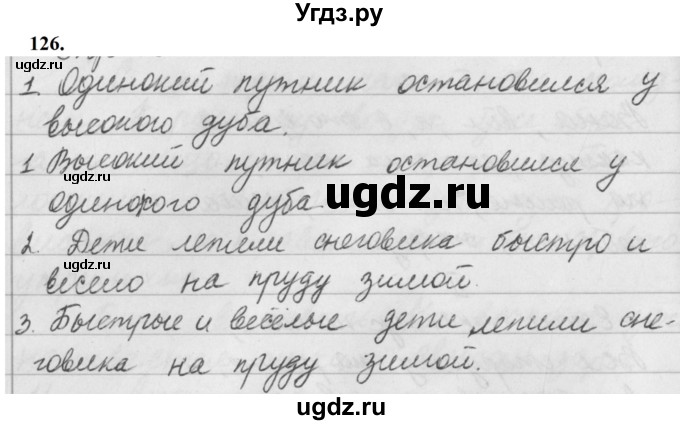 Угдз.ру
126.
1. Одинокий путник остановился у
высокого дуба.
1 Высокий путник остановился у
одинокого дуба
2. Дети лепили снеговика быстро и
весело на пруду зимой.
3. Быстрые и весёлые дети лепили сне-
говика на пруду зимой.
ugdz.ru
ugdz.ru
ugdz.ru
ugdz.ru
ugdz.ru
ugdz.ru
ugdz.ru
ugdz.ru